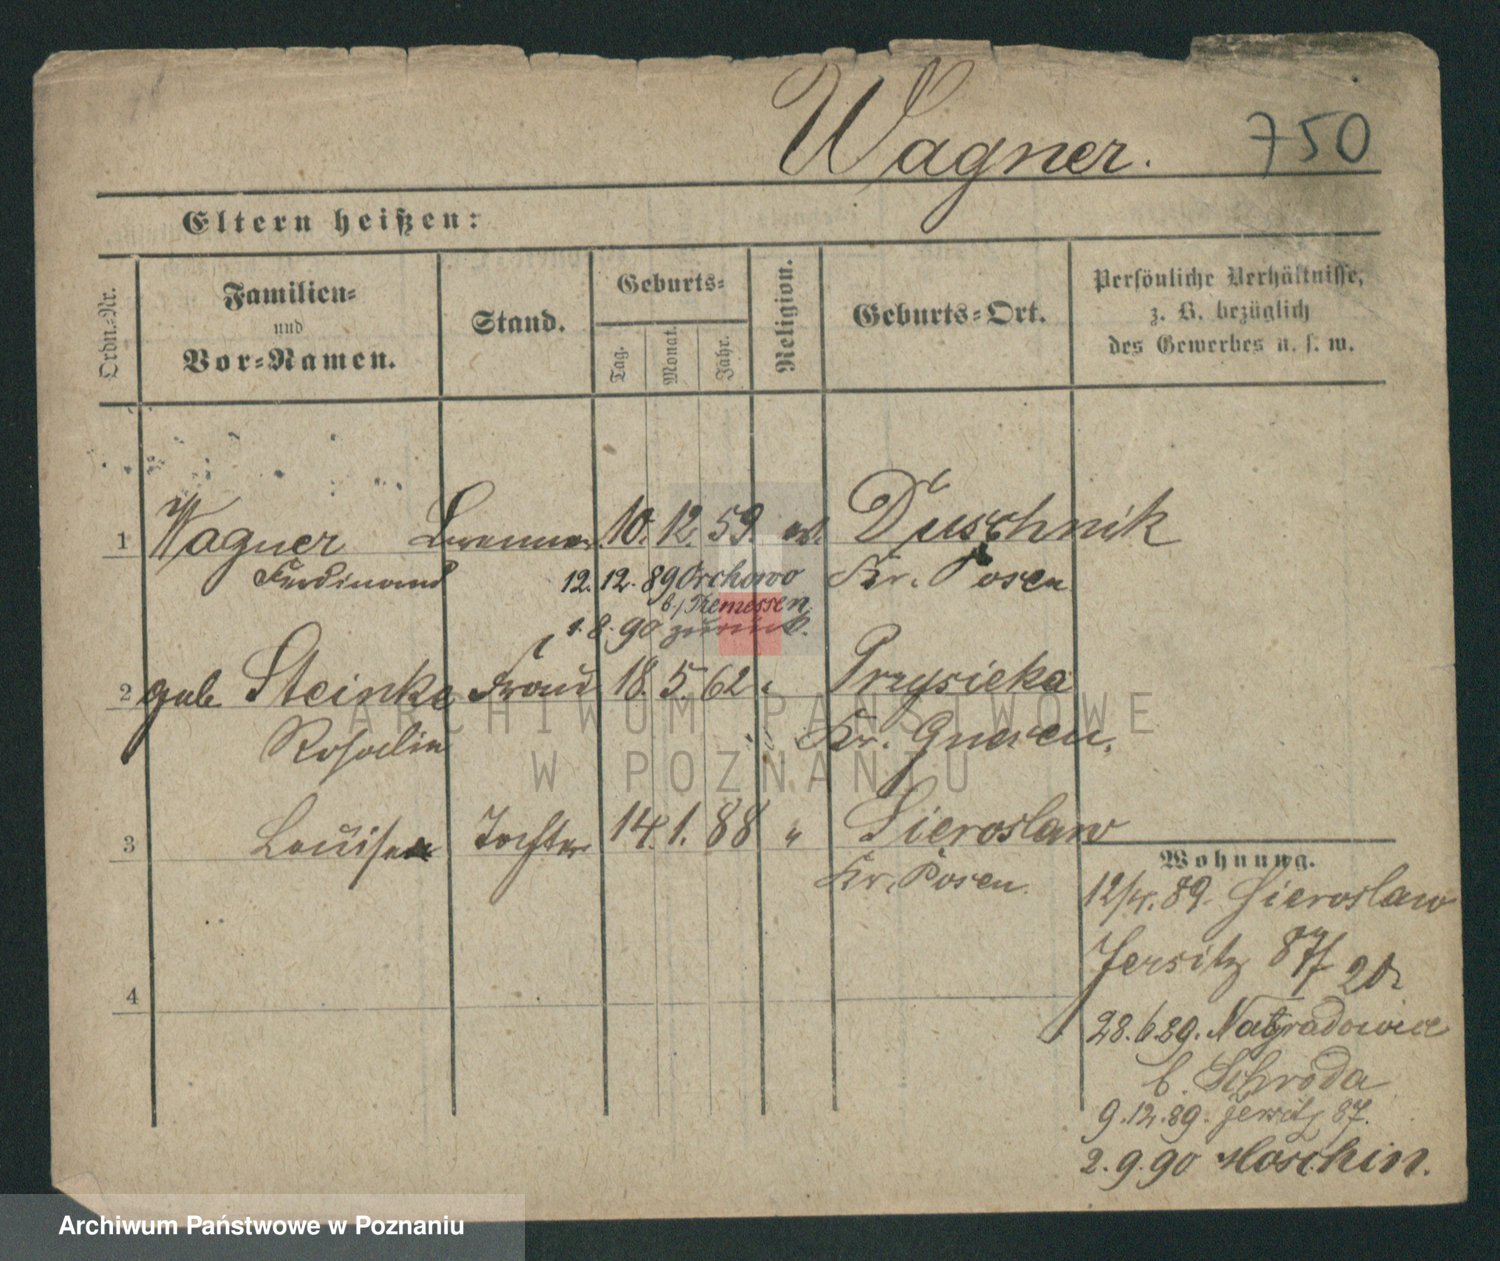 Wagner. 750
Eltern heißen:
Ordn.-Nr.
Familien-
und
Vor-Namen.
Stand.
Geburts-
Tag.
Monat.
Jahr.
Religion.
Geburts-Ort.
Persönliche Verhältnisse,
z. B. bezüglich
des Gewerbes u. s. w.
1 Wagner 10. 12. 59. Duschnik
Ferdinand 12. 12. 89 Orchowo Kr. Posen
b/ Tremessen
1. 8. 90 zurück.
2 geb. Steinke Frau 18. 5. 62 " Przysieka
Rosalie Kr. Gnesen.
3 Louise Tochter 14. 1. 88 " Sieroslaw
Kr. Posen.
4
Wohnung.
12/4. 89. Sieroslaw
Jersitz 87/
28.6.89. Nagradowice
b. Schroda
9.12.89. Jersitz 87.
2.9.90 Moschin.
ARCHIWUM PAŃSTWOWE
W POZNANIU
Archiwum Państwowe w Poznaniu